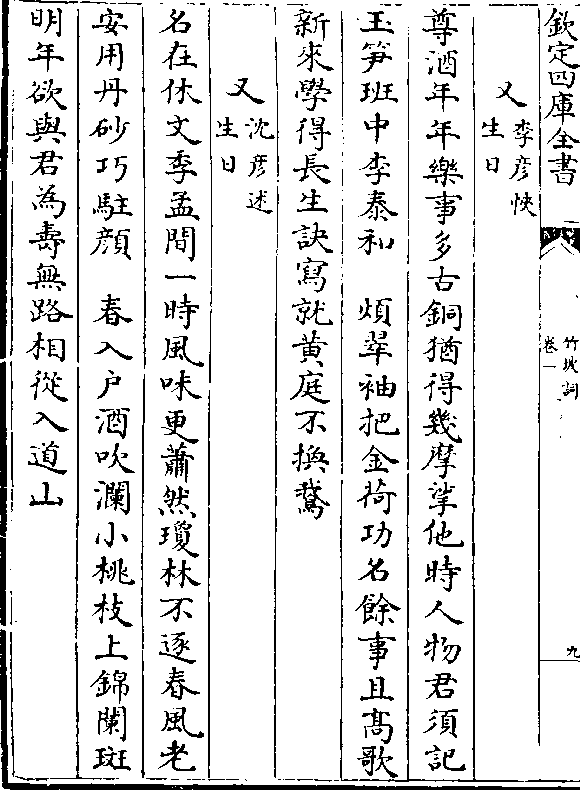 欽定四庫全書
竹坡詞
卷一
九
又李彦恢
生日
尊酒年年樂事多古銅猶得幾摩挲他時人物君須記
玉笋班中李泰和　煩翠袖把金荷功名餘事且髙歌
新來學得長生訣寫就黄庭不換鵞
又沈彦述
生日
名在休文季孟間一時風味更蕭然瓊林不逐春風老
安用丹砂巧駐顔　春入户酒吹瀾小桃枝上錦闌斑
明年欲與君為壽無路相從入道山